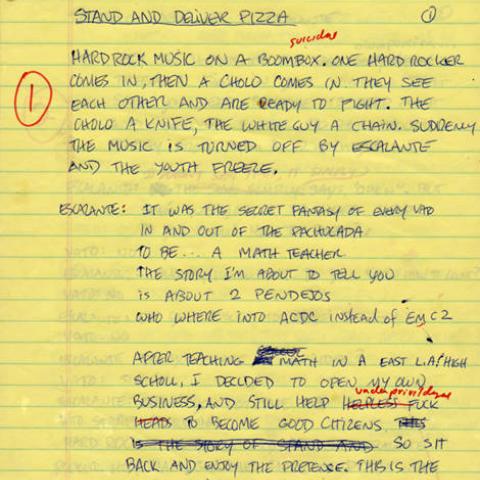 STAND AND DELIVER PIZZA ①
suicidal
HARD ROCK MUSIC ON A BOOMBOX. ONE HARD ROCKER
COMES IN, THEN A CHOLO COMES IN. THEY SEE
1 EACH OTHER AND ARE READY TO FIGHT. THE
CHOLO A KNIFE, THE WHITE GUY A CHAIN. SUDDENLY
THE MUSIC IS TURNED OFF BY ESCALANTE
AND THE YOUTH FREEZE.
ESCALANTE: IT WAS THE SECRET FANTASY OF EVERY VATO
IN AND OUT OF THE PACHUCADA
TO BE... A MATH TEACHER
THE STORY I'M ABOUT TO TELL YOU
IS ABOUT 2 PENDEJOS
WHO WHERE INTO ACDC instead of EMC2
AFTER TEACHING MATH IN A EAST L.A. HIGH
SCHOLL, I DECIDED TO OPEN MY OWN
underprivileged
BUSINESS, AND STILL HELP HELPLESS FUCK
HEADS TO BECOME GOOD CITIZENS. THIS
IS THE STORY OF STAND AND SO SIT
BACK AND ENJOY THE PRETENCE. THIS IS THE